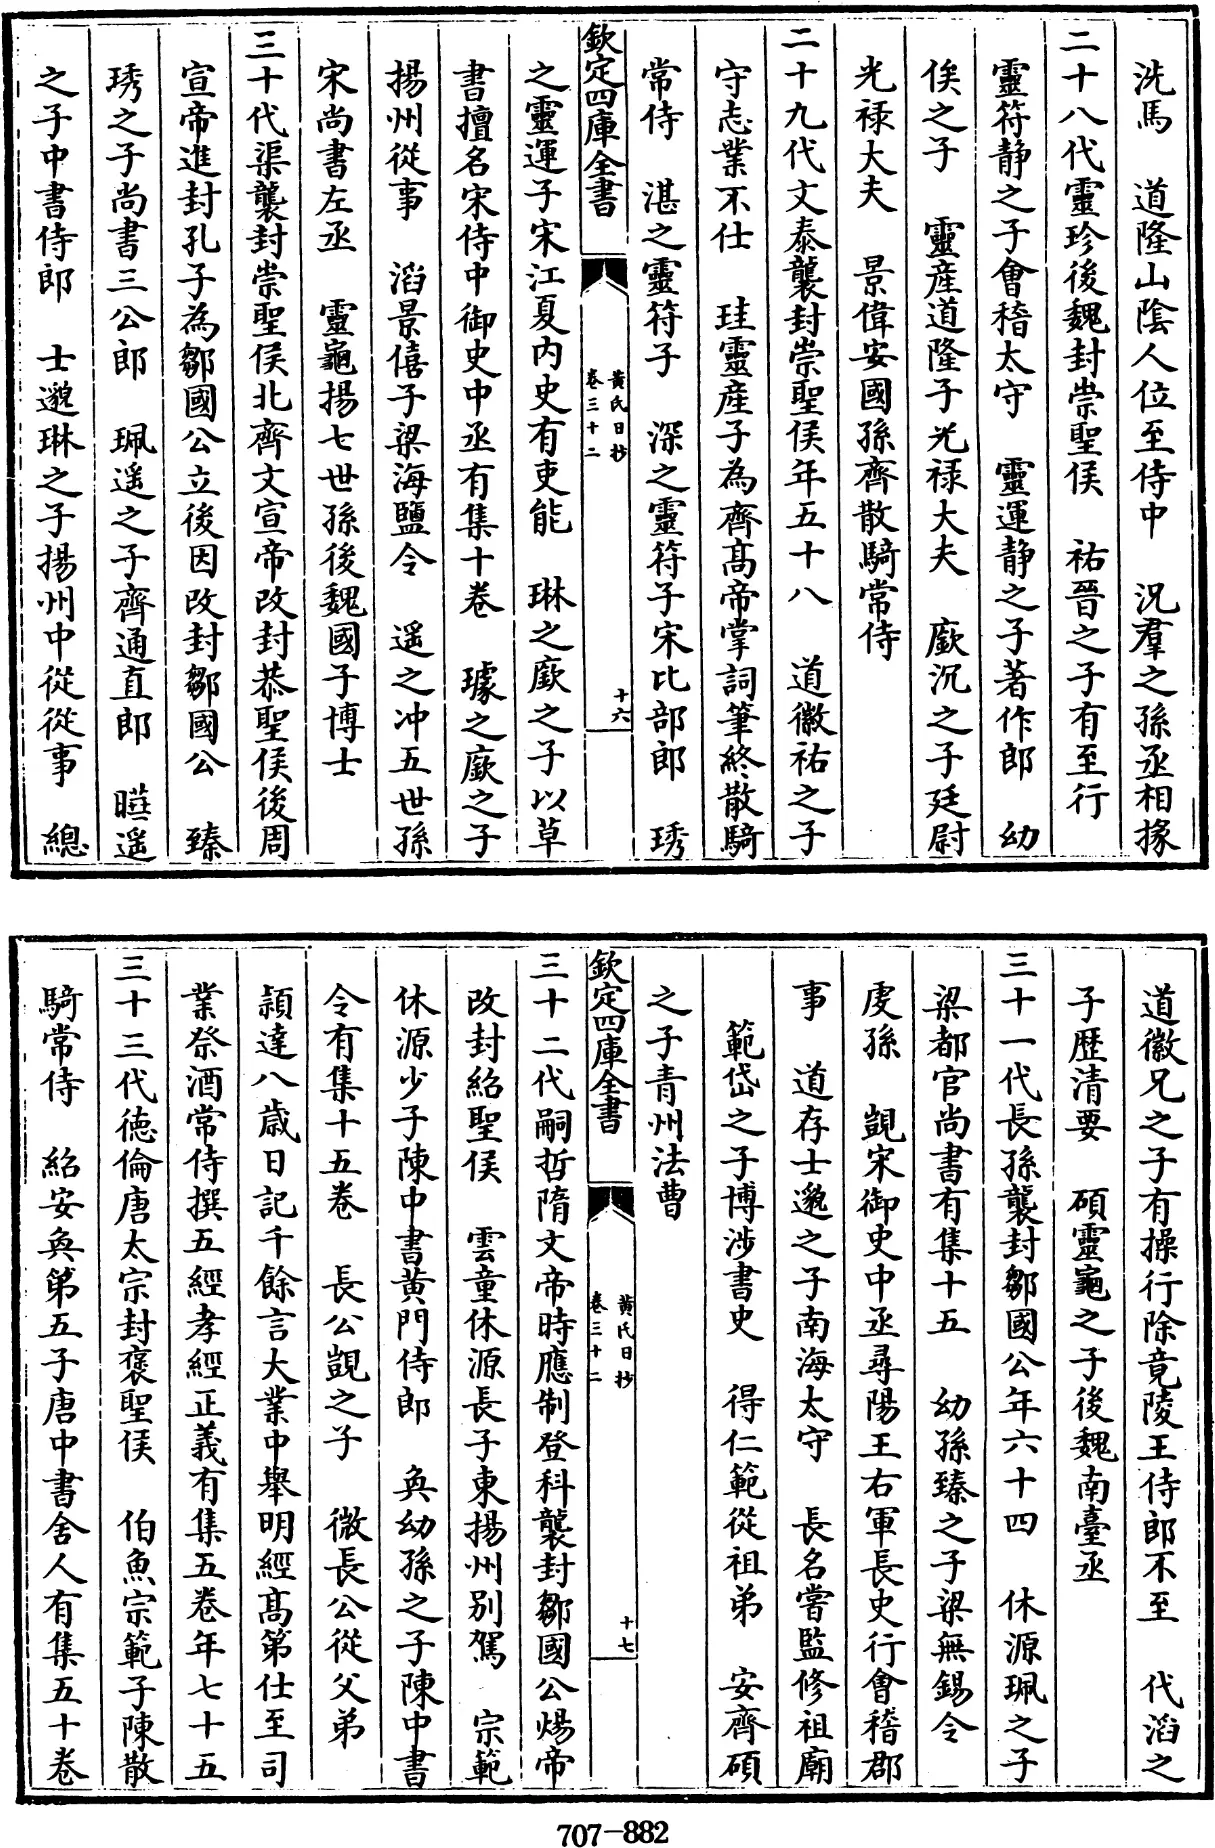 洗馬　道隆山隂人位至侍中　況羣之孫丞相掾
二十八代靈珍後魏封崇聖侯　祐晉之子有至行
靈符静之子會稽太守　靈運静之子著作郎　幼
侯之子　靈産道隆子光禄大夫　廞沉之子廷尉
光禄大夫　景偉安國孫齊散騎常侍
二十九代文泰襲封崇聖侯年五十八　道徽祐之子
守志業不仕　珪靈産子為齊髙帝掌詞筆終散騎
常侍　湛之靈符子　深之靈符子宋比部郎　琇
欽定四庫全書
黄氏日抄
卷三十二
十六
之靈運子宋江夏内史有吏能　琳之廞之子以草
書擅名宋侍中御史中丞有集十卷　璩之廞之子
揚州從事　滔景僖子梁海鹽令　遥之冲五世孫
宋尚書左丞　靈龜揚七世孫後魏國子博士
三十代渠襲封崇聖侯北齊文宣帝改封恭聖侯後周
宣帝進封孔子為鄒國公立後因改封鄒國公　臻
琇之子尚書三公郎　珮遥之子齊通直郎　㬢遥
之子中書侍郎　士邈琳之子揚州中從從事　總
道徽兄之子有操行除竟陵王侍郎不至　代滔之
子歴清要　碩靈龜之子後魏南臺丞
三十一代長孫襲封鄒國公年六十四　休源珮之子
梁都官尚書有集十五　幼孫臻之子梁無錫令
虔孫　覬宋御史中丞尋陽王右軍長史行會稽郡
事　道存士邈之子南海太守　長名嘗監修祖廟
範岱之子博涉書史　得仁範從祖弟　安齊碩
之子青州法曹
欽定四庫全書
黄氏日抄
卷三十二
十七
三十二代嗣哲隋文帝時應制登科襲封鄒國公煬帝
改封紹聖侯　雲童休源長子東揚州别駕　宗範
休源少子陳中書黄門侍郎　奐幼孫之子陳中書
令有集十五卷　長公覬之子　微長公從父弟
頴達八歳日記千餘言大業中舉明經髙第仕至司
業祭酒常侍撰五經孝經正義有集五卷年七十五
三十三代徳倫唐太宗封褒聖侯　伯魚宗範子陳散
騎常侍　紹安奐第五子唐中書舍人有集五十卷
707-882